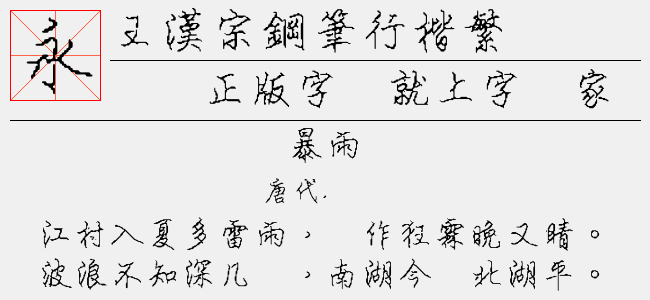 永
王漢宗鋼筆行楷繁
正版字 就上字 家
暴雨
唐代.
江村入夏多雷雨， 作狂霖晚又晴。
波浪不知深几 ，南湖今 北湖平。